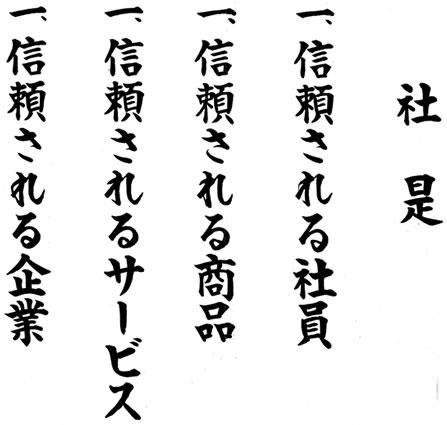 社是
一、信頼される社員
一、信頼される商品
一、信頼されるサービス
一、信頼される企業